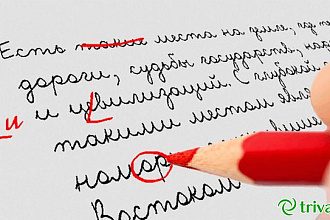 Есть такие места на земле, где
дороги, судьбы государств,
и и цивилизаций. С глубокой
такими местом явля
ном
Востоком
triva